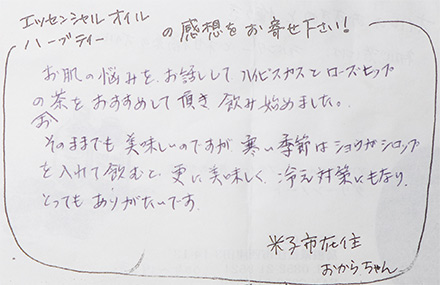 エッセンシャルオイル
ハーブティー の感想をお寄せ下さい！
お肌の悩みをお話しして ハイビスカスとローズヒップ
のお茶をおすすめして頂き 飲み始めました。
そのままでも美味しいのですが 寒い季節はショウガシロップ
を入れて飲むと、更に美味しく、冷え対策にもなり、
とっても ありがたいです。
米子市在住
おからちゃん